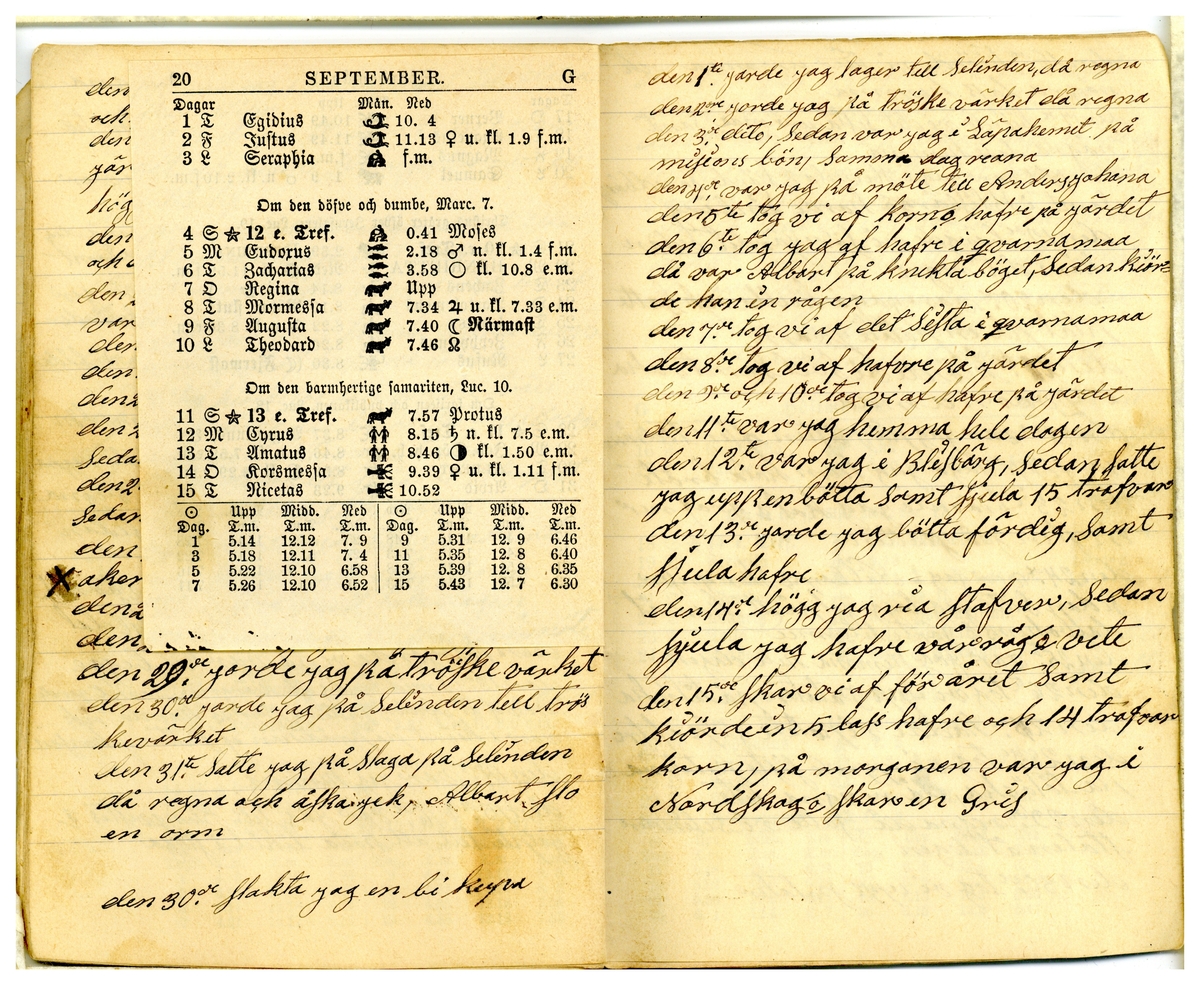 den
och
den
går
hög
den
och
den
var
den
den
den
den 2
Seda
den 2
Sedan
den
X aker
den
den
20 SEPTEMBER. G
Dagar Mån. Ned
1 T Egidius 10. 4
2 F Justus 11.13 ♀ u. kl. 1.9 f.m.
3 L Seraphia f.m.
Om den döfve och dumbe, Marc. 7.
4 S ☆ 12 e. Tref. 0.41 Moses
5 M Eudoxus 2.18 ♂ n. kl. 1.4 f.m.
6 T Zacharias 3.58 ○ kl. 10.8 e.m.
7 O Regina Upp
8 T Mormessa 7.34 ♃ u. kl. 7.33 e.m.
9 F Augusta 7.40 ☾ Närmast
10 L Theodard 7.46 ☊
Om den barmhertige samariten, Luc. 10.
11 S ☆ 13 e. Tref. 7.57 Protus
12 M Cyrus 8.15 ♄ n. kl. 7.5 e.m.
13 T Amatus 8.46 ◑ kl. 1.50 e.m.
14 O Korsmessa 9.39 ♀ u. kl. 1.11 f.m.
15 T Nicetas 10.52
☉ Upp Midd. Ned ☉ Upp Midd. Ned
Dag. T.m. T.m. T.m. Dag. T.m. T.m. T.m.
1 5.14 12.12 7. 9 9 5.31 12. 9 6.46
3 5.18 12.11 7. 4 11 5.35 12. 8 6.40
5 5.22 12.10 6.58 13 5.39 12. 8 6.35
7 5.26 12.10 6.52 15 5.43 12. 7 6.30
den 29de yorde yag på tröske värket
den 30de yorde yag på Selinden tell trös
kevärket
den 31te Satte yag på Slaga på Selinden
då regna och åska yek, Albart slo
en orm
den 30de slakta yag en bi kupa
den 1te yorde yag lager tell Selinden, då regna
den 2dre yorde yag på tröske värket då regna
den 3de dito, Sedan var yag i Läpahemet, på
misions bön, Samma dag regna
den 4de var yag på möte tell Andersyohana
den 5te tog vi af korn o hafre på yärdet
den 6te tog yag af hafre i qvarnamaa
då var Albart på knekta böget, Sedan kiör=
de han in rågen
den 7de tog vi af det Sista i qvarnamaa
den 8de tog vi af hafvre på yärdet
den 9de och 10de tog vi af hafre på yärdet
den 11te var yag hemma hele dagen
den 12te var yag i Blisbärg, Sedan Satte
yag upp en bötta Samt skula 15 trafvar
den 13de yorde yag bötta fördig, Samt
skula hafre
den 14de högg yag ria stafver, Sedan
skula yag hafre vårråg o vete
den 15de skar vi af för året Samt
kiörde in 5 lass hafre och 14 trafvar
korn, på morganen var yag i
Nordskog o skar en Gris